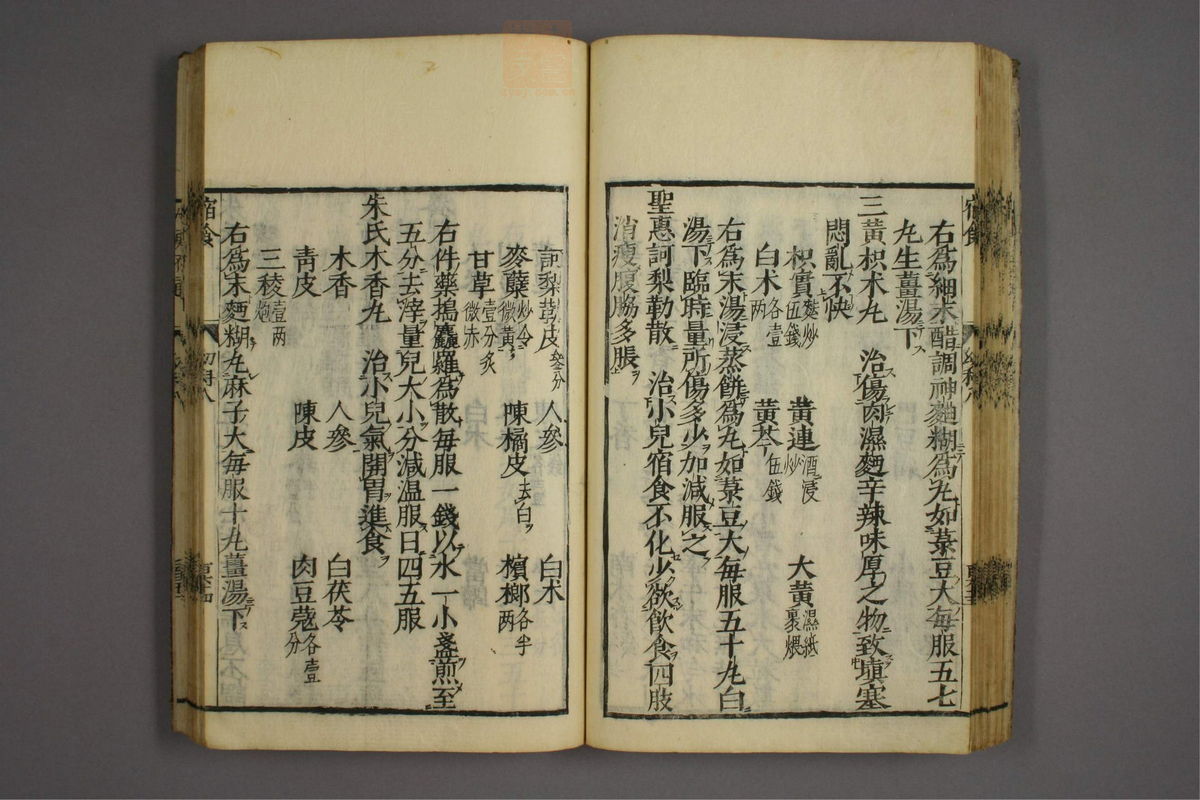 右爲細末醋調神麯糊爲丸如菉豆大每服五七
丸生薑湯下
三黃枳朮丸 治傷肉濕麪辛辣味厚之物致塡塞
悶亂不快
枳實麩炒伍錢 黃連酒浸炒 大黃濕紙裹煨
白朮各壹兩 黃芩伍錢
右爲末湯浸蒸餠爲丸如菉豆大每服五十丸白
湯下臨時量所傷多少加減服之
聖惠訶梨勒散 治小兒宿食不化少欲飮食四肢
消瘦腹脇多脹
訶梨勒皮叄分 人參 白朮
麥蘖炒令微黃 陳橘皮去白 檳榔各半兩
甘草壹分炙微赤
右件藥搗麤羅爲散每服一錢以水一小盞煎至
五分去滓量兒大小分減温服日四五服
朱氏木香丸 治小兒氣開胃進食
木香 人參 白茯苓
靑皮 陳皮 肉豆蔲各壹分
三稜壹兩炮
右爲末麪糊丸麻子大每服十丸薑湯下
宿食